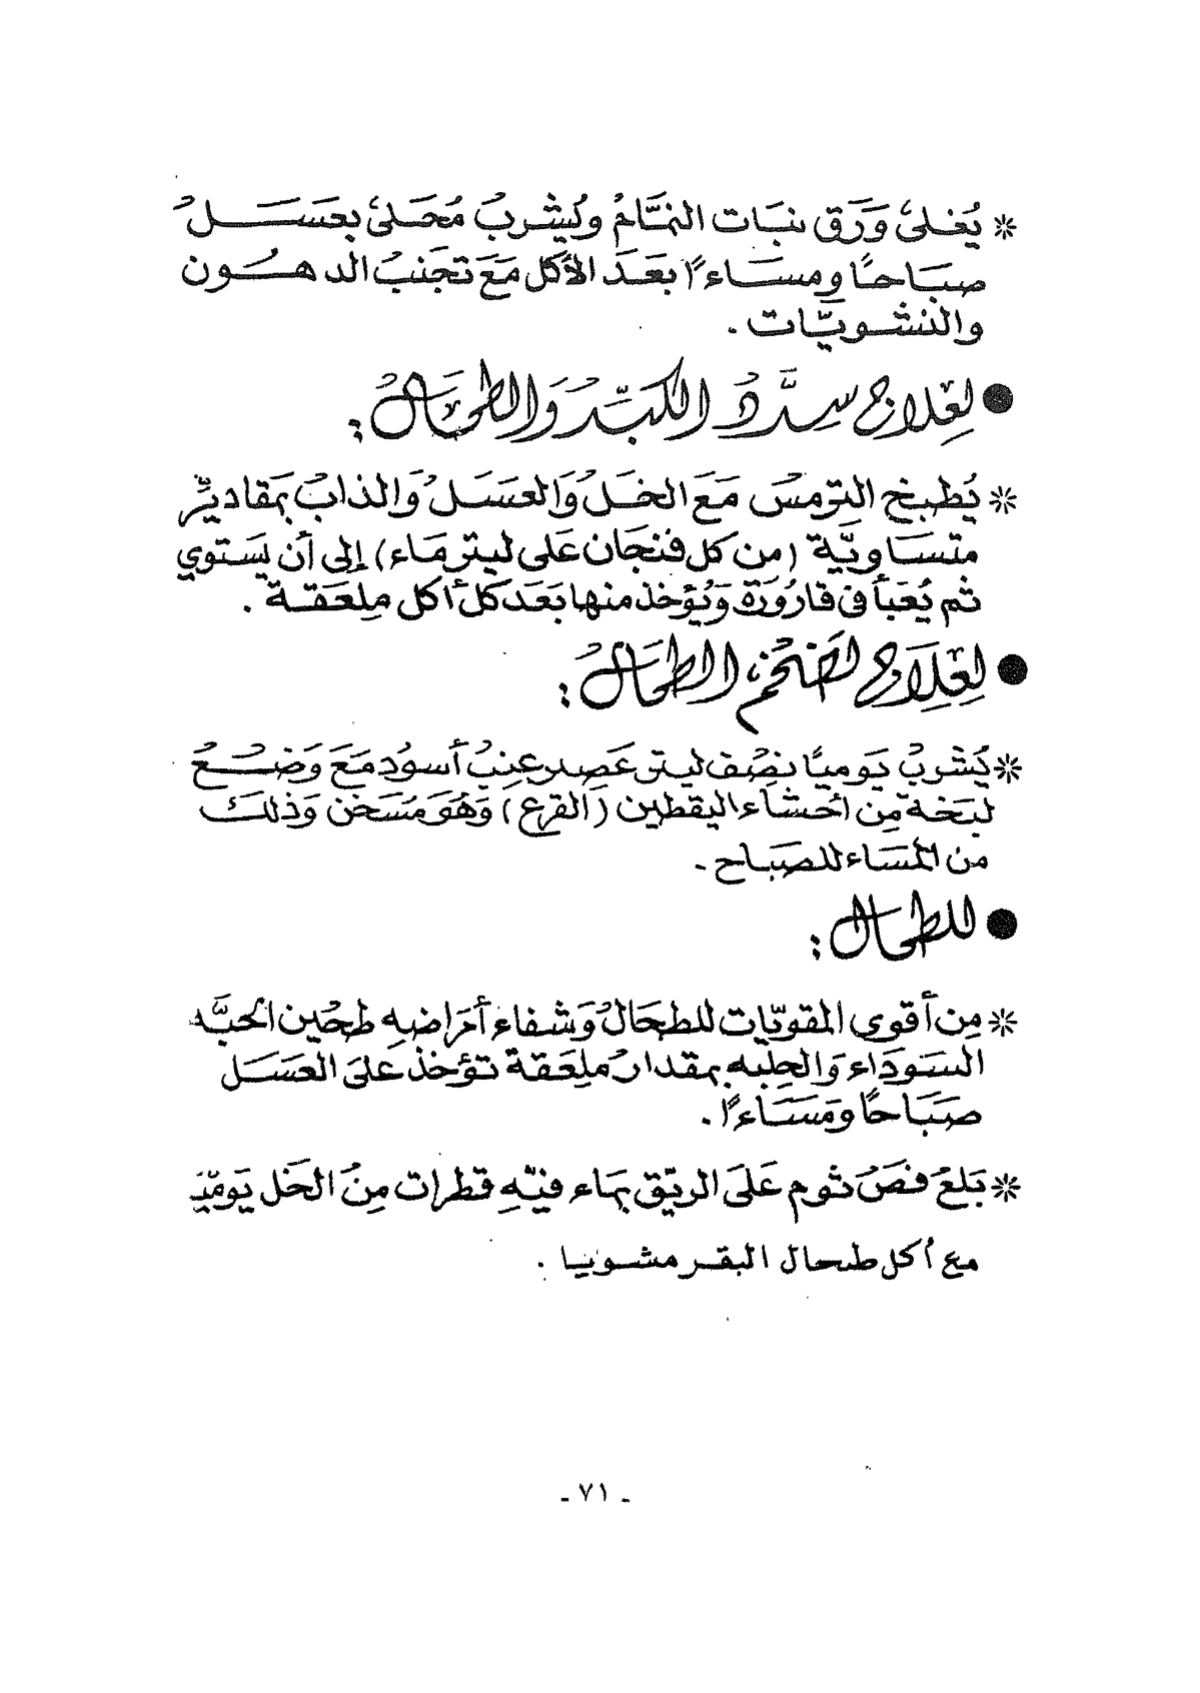 * يُغلىَ وَرَق نبَات النمَّام وَيُشْربُ مُحَلىَ بعَسَــــلُ
صبَاحًا ومسَــاءًا بعَدَ الأكل مَعَ تجَنبُ الدهــون
والنشويَّات .
● لعِلاج سدَّدُ الكبِّد وَالطحَالُ :
* يُطبخ الترمسَ مَعَ الخَلُ وَالعسَلُ وَالذابُ بمَقاديرِّ
متسَاويَّة (من كل فنجَان عَلى ليتر مَاء) إلى أن يسَتوي
ثم يُعَبأ فى قارُورَة وَيُؤخذ منها بَعَدَ كل أكل ملِعَقة .
● لعِلِاَج تضخُم الطحَالُ :
* يُشربُ يَوميًا نصِف ليتر عَصير عِنبُ أسودُ مَعَ وَضْـعُ
لبَخة مِن أحشاء اليقطين (القرع) وَهُوَ مَسَخن وَذلكَ
من المسَاء للصبَاح .
● للطحال :
* مِن أقوى المقويّات للطحَالُ وَشفاء أمَراضهِ طحُين الحَبَّه
السَودَاء وَالحِلبه بمقدارُ ملِعَقة تؤخذ عَلىَ العسَل
صَبَاحًا ومَسَاءًا .
* بَلعَ فصَ ثوم عَلىَ الريّق بمَاء فيّهِ قطرات مِنُ الخَل يَوميّ
مع أكل طحال البقر مشويا .
- ٧١ -